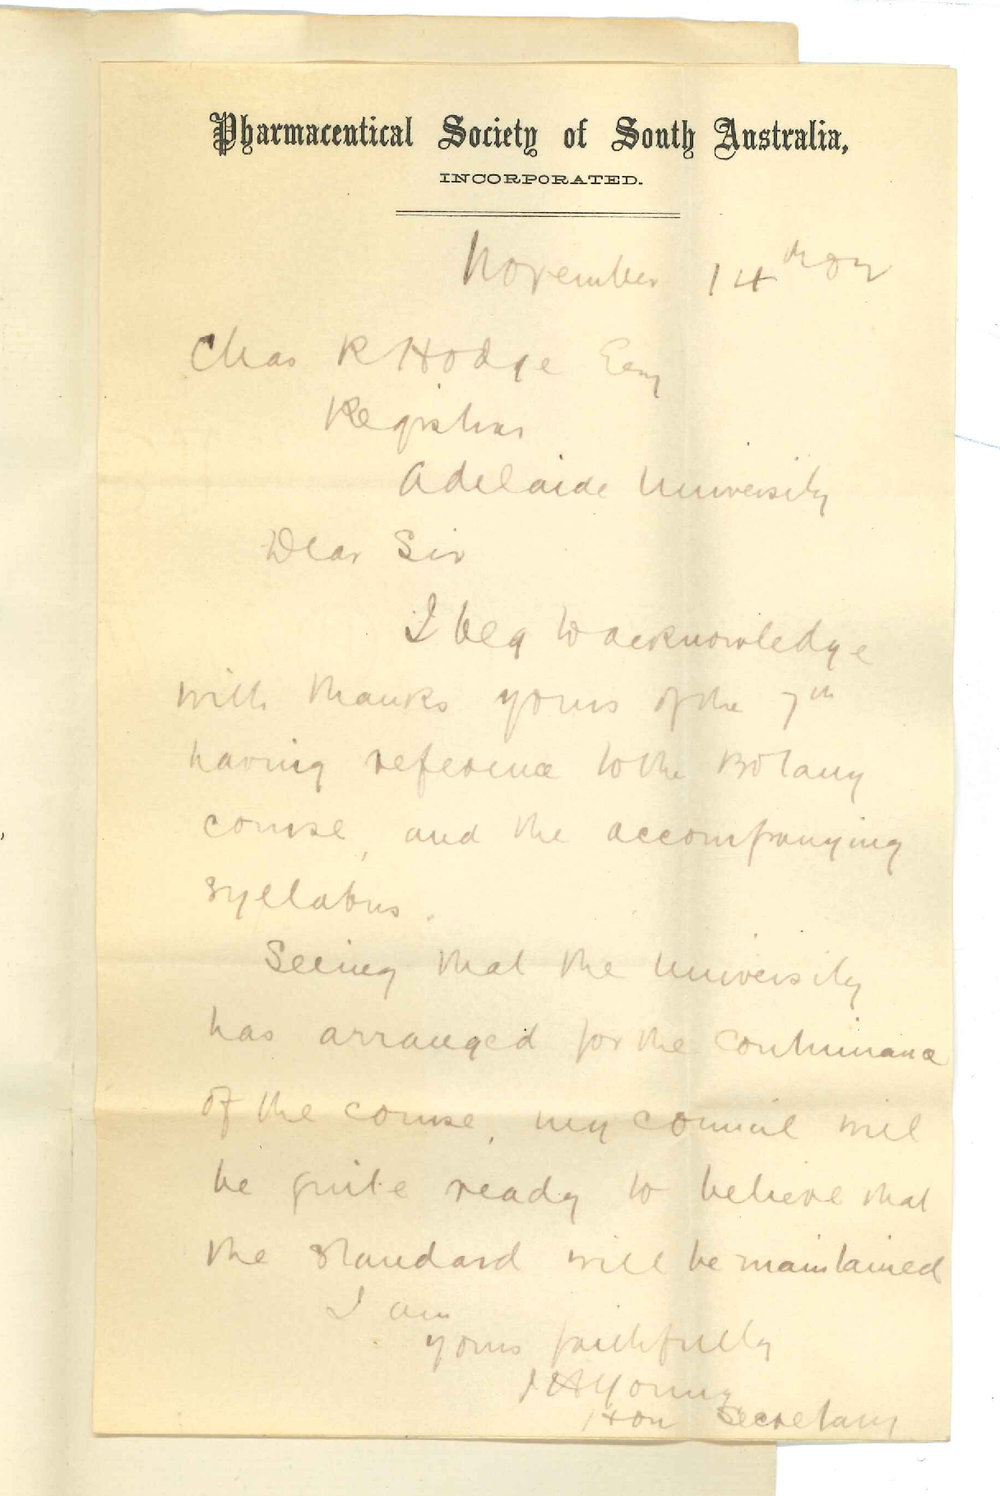 Pharmaceutical Society of South Australia,
INCORPORATED.
November 14th
Chas R Hodge Esq
Registrar
Adelaide University
Dear Sir
I beg to acknowledge
with thanks yours of the 7th
having reference to the Botany
course, and the accompanying
syllabus.
Seeing that the University
has arranged for the continuance
of the course, my council will
be quite ready to believe that
the standard will be maintained
I am
yours faithfully
Young
Hon Secretary